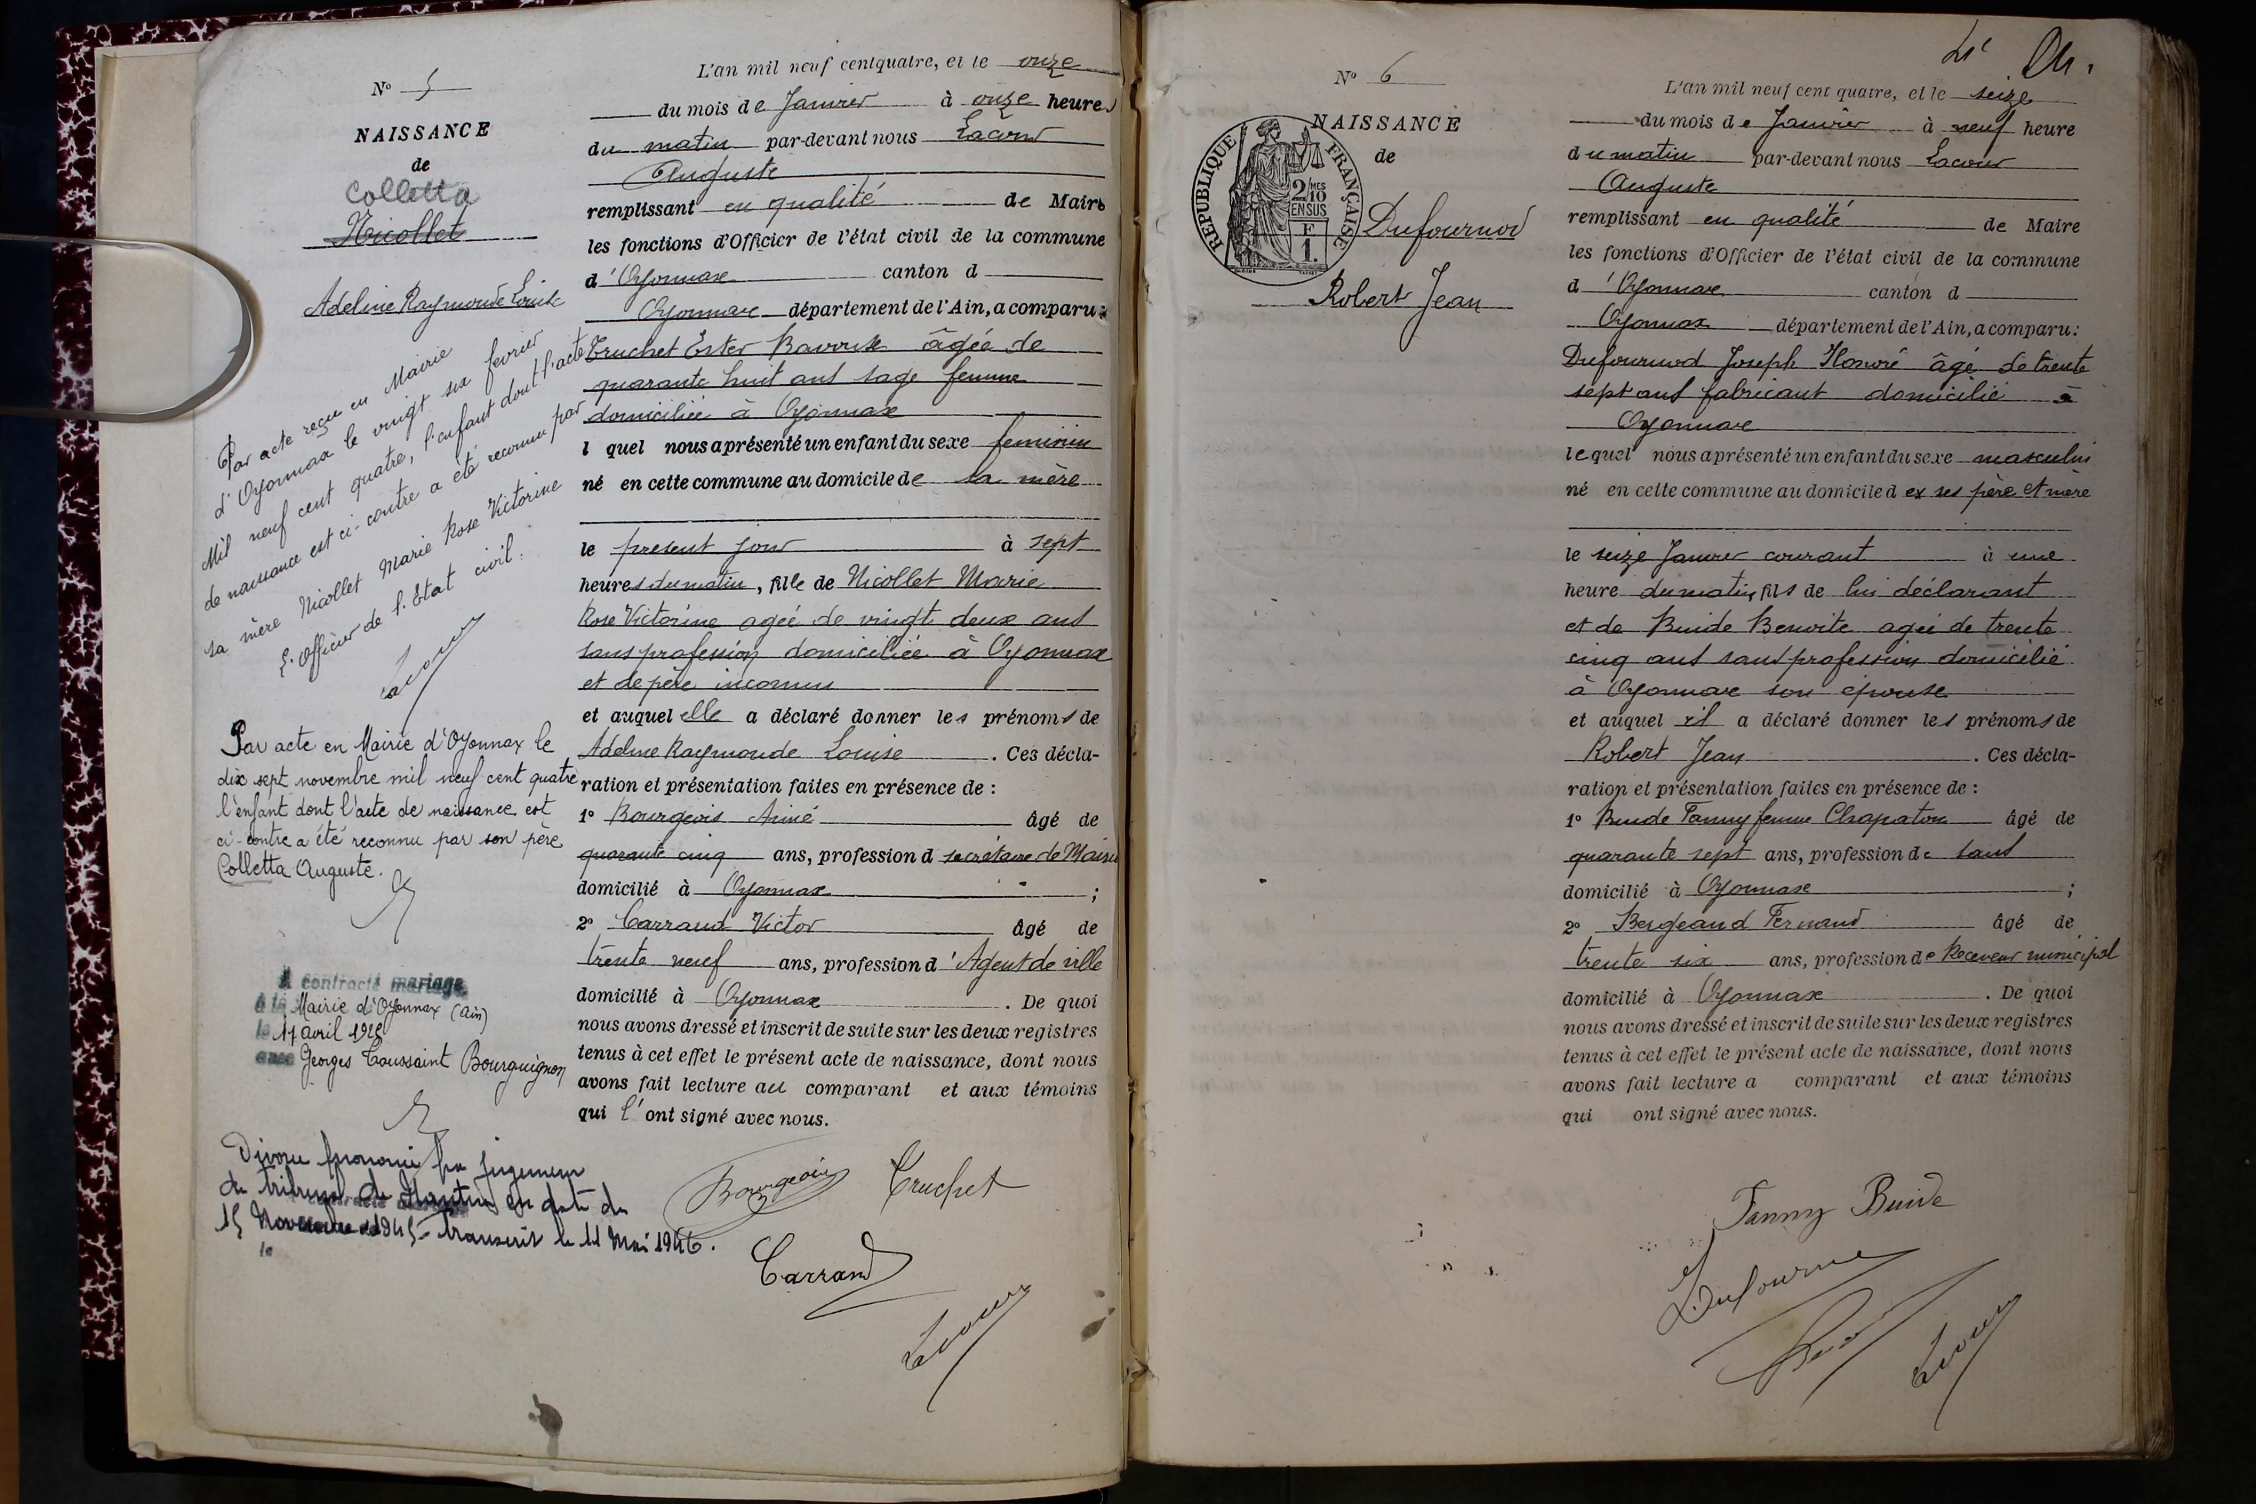 N° 5
NAISSANCE
de
Colletta
Nicollet
Adeline Raymonde Louise
Par acte reçu en Mairie
d'Oyonnax le vingt six février
Mil neuf cent quatre, l'enfant dont l'acte
de naissance est ci-contre a été reconnu par
sa mère Nicollet Marie Rose Victorine
L'Officier de l'Etat civil:
Lacour
Par acte en Mairie d'Oyonnax le
dix sept novembre mil neuf cent quatre
l'enfant dont l'acte de naissance est
ci-contre a été reconnu par son père
Colletta Auguste.
A contracté mariage
à la Mairie d'Oyonnax (Ain)
le 17 avril 1925
avec Georges Toussaint Bourguignon
Divorce prononcé par jugement
du tribunal de Nantua en date du
15 Novembre 1945 - Transcrit le 11 Mai 1946.
le
L'an mil neuf cent quatre, et le onze
du mois de Janvier à onze heures
du matin par-devant nous Lacour
Auguste
remplissant en qualité de Maire
les fonctions d'Officier de l'état civil de la commune
d'Oyonnax canton d
Oyonnax département de l'Ain, a comparu:
Truchet Ester Bavouse âgée de
quarante huit ans sage femme
domiciliée à Oyonnax
l quel nous a présenté un enfant du sexe feminin
né en cette commune au domicile de sa mère
le present jour à sept
heures du matin, fille de Nicollet Marie
Rose Victorine agée de vingt deux ans
sans profession domiciliée à Oyonnax
et de père inconnu
et auquel elle a déclaré donner les prénoms de
Adeline Raymonde Louise . Ces décla-
ration et présentation faites en présence de :
1° Bourgeois Aimé âgé de
quarante cinq ans, profession d secrétaire de Mairie
domicilié à Oyonnax ;
2° Carraud Victor âgé de
trente neuf ans, profession d'Agent de ville
domicilié à Oyonnax . De quoi
nous avons dressé et inscrit de suite sur les deux registres
tenus à cet effet le présent acte de naissance, dont nous
avons fait lecture au comparant et aux témoins
qui l'ont signé avec nous.
Bourgeois Truchet
Carraud
Lacour
N° 6
NAISSANCE
de
REPUBLIQUE FRANÇAISE
2/10 MES
EN SUS
F
1.
Dufournod
Robert Jean
L'an mil neuf cent quatre, et le seize
du mois de Janvier à neuf heure
du matin par-devant nous Lacour
Auguste
remplissant en qualité de Maire
les fonctions d'Officier de l'état civil de la commune
d'Oyonnax canton d
Oyonnax département de l'Ain, a comparu:
Dufournod Joseph Honoré âgé de trente
sept ans fabricant domicilié à
Oyonnax
lequel nous a présenté un enfant du sexe masculin
né en cette commune au domicile d ex ses père et mère
le seize Janvier courant à une
heure du matin, fils de lui déclarant
et de Buide Benoite agée de trente
cinq ans sans profession domicilié
à Oyonnax son épouse
et auquel il a déclaré donner les prénoms de
Robert Jean . Ces décla-
ration et présentation faites en présence de :
1° Buide Fanny femme Chapaton âgé de
quarante sept ans, profession de sans
domicilié à Oyonnax ;
2° Bergeand Fernand âgé de
trente six ans, profession de Receveur municipal
domicilié à Oyonnax . De quoi
nous avons dressé et inscrit de suite sur les deux registres
tenus à cet effet le présent acte de naissance, dont nous
avons fait lecture a comparant et aux témoins
qui ont signé avec nous.
Fanny Buide
Dufournod
Lacour